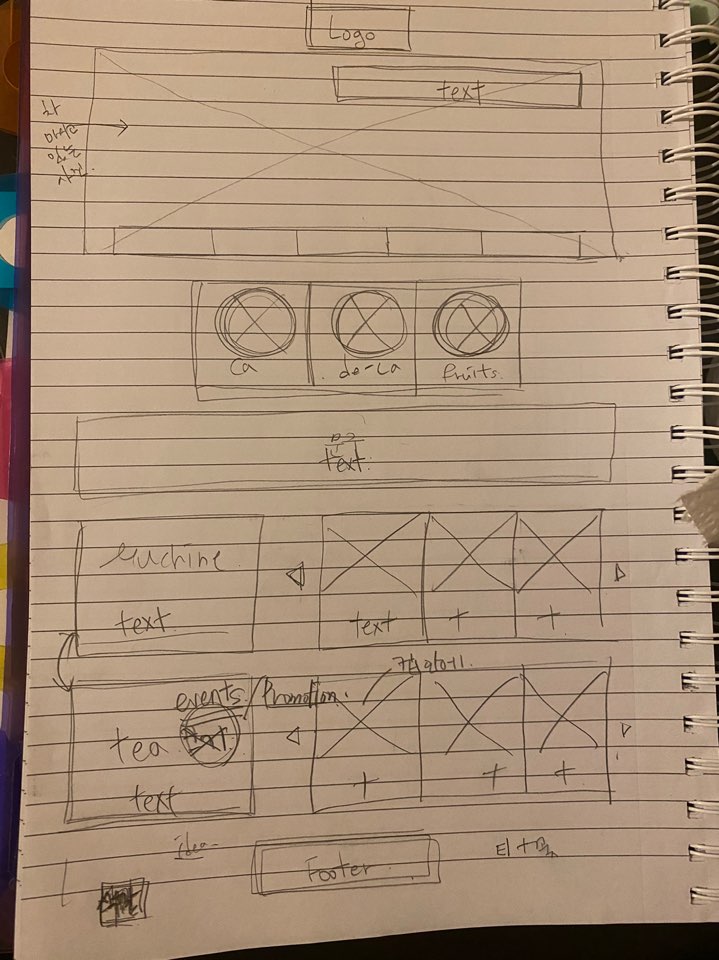 Logo
text
ca
de-ca
fruits.
text.
Machine
text
text
t
t
events/Promotion.
tea
text
t
t
t
idea
Footer